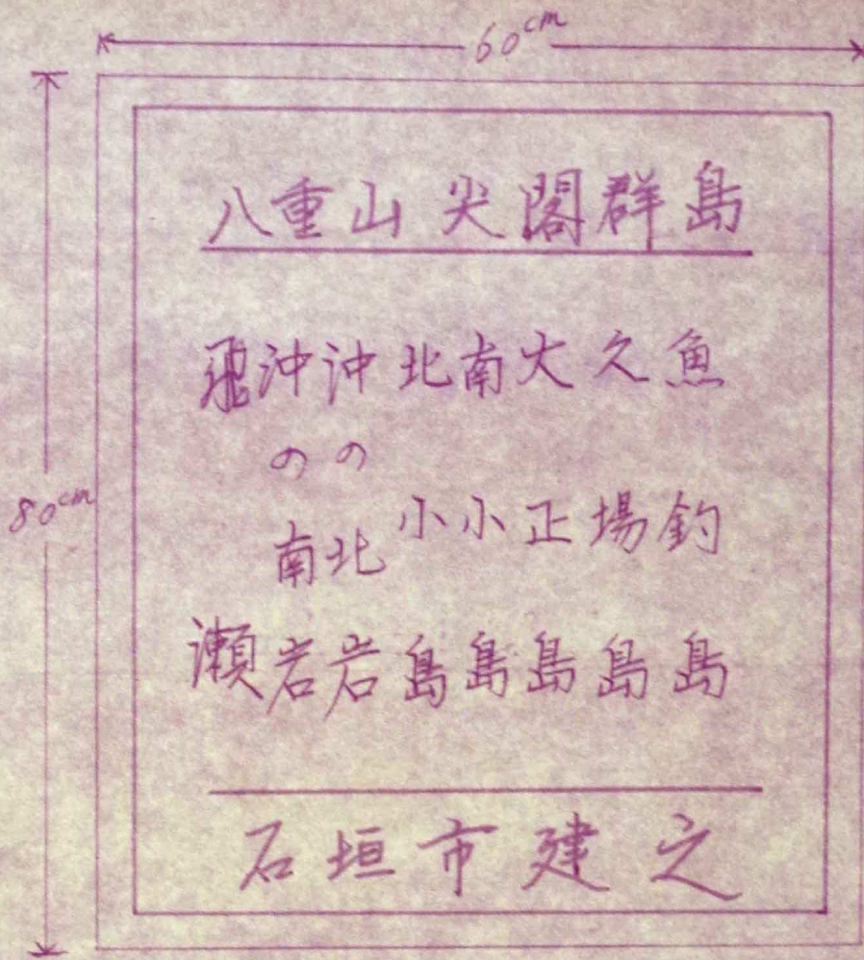 60cm
80cm
八重山尖閣群島
魚釣島
久場島
大正島
南小島
北小島
沖の北岩
沖の南岩
飛瀬
石垣市建之